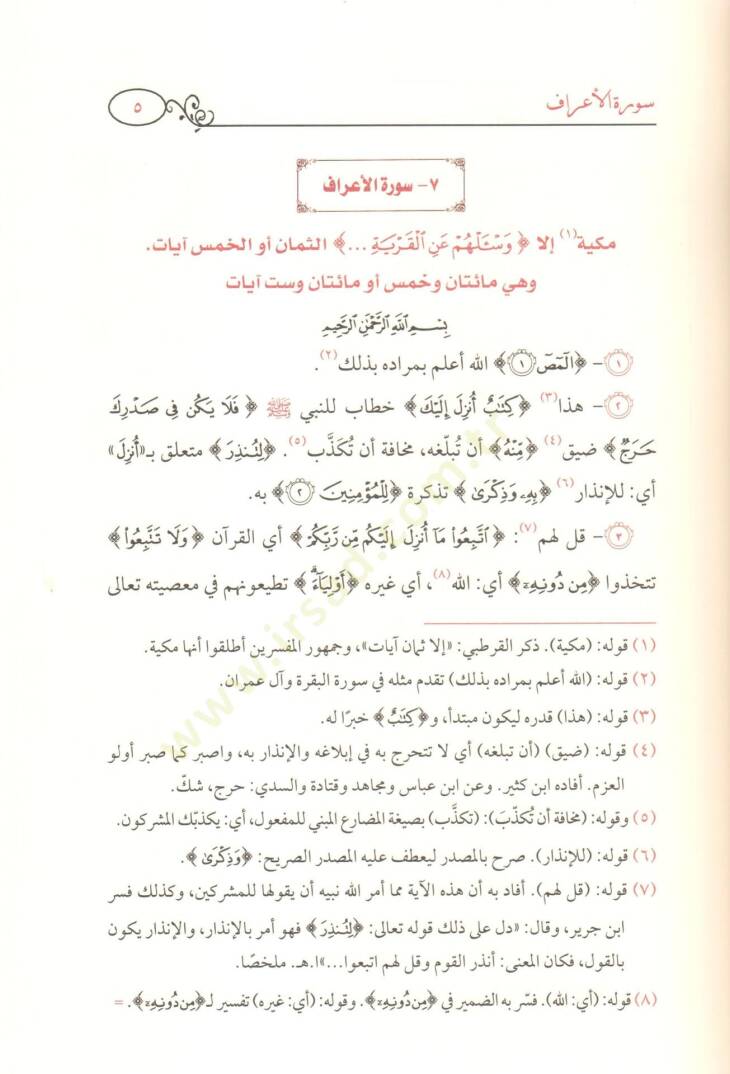 سورة الأعراف
٥
٧- سورة الأعراف
مكية(١) إلا ﴿وَسْـَٔلْهُمْ عَنِ ٱلْقَرْيَةِ ...﴾ الثمان أو الخمس آيات.
وهي مائتان وخمس أو مائتان وست آيات
بِسْمِ ٱللَّهِ ٱلرَّحْمَٰنِ ٱلرَّحِيمِ
١- ﴿الٓمٓصٓ ١﴾ الله أعلم بمراده بذلك(٢).
٢- هذا(٣) ﴿كِتَٰبٌ أُنزِلَ إِلَيْكَ﴾ خطاب للنبي ﷺ ﴿فَلَا يَكُن فِى صَدْرِكَ
حَرَجٌ﴾ ضيق(٤) ﴿مِّنْهُ﴾ أن تُبلّغه، مخافة أن تُكَذَّب(٥). ﴿لِتُنذِرَ﴾ متعلق بـ«أُنزِلَ»
أي: للإنذار(٦) ﴿بِهِۦ وَذِكْرَىٰ﴾ تذكرة ﴿لِلْمُؤْمِنِينَ ٢﴾ به.
٣- قل لهم(٧): ﴿ٱتَّبِعُوا۟ مَآ أُنزِلَ إِلَيْكُم مِّن رَّبِّكُمْ﴾ أي القرآن ﴿وَلَا تَتَّبِعُوا۟﴾
تتخذوا ﴿مِن دُونِهِۦٓ﴾ أي: الله(٨)، أي غيره ﴿أَوْلِيَآءَ﴾ تطيعونهم في معصيته تعالى
(١) قوله: (مكية). ذكر القرطبي: «إلا ثمان آيات»، وجمهور المفسرين أطلقوا أنها مكية.
(٢) قوله: (الله أعلم بمراده بذلك) تقدم مثله في سورة البقرة وآل عمران.
(٣) قوله: (هذا) قدره ليكون مبتدأ، و﴿كِتَٰبٌ﴾ خبرًا له.
(٤) قوله: (ضيق) (أن تبلغه) أي لا تتحرج به في إبلاغه والإنذار به، واصبر كما صبر أولو
العزم. أفاده ابن كثير. وعن ابن عباس ومجاهد وقتادة والسدي: حرج، شكّ.
(٥) وقوله: (مخافة أن تُكذّبَ): (تكذَّب) بصيغة المضارع المبني للمفعول، أي: يكذبّك المشركون.
(٦) قوله: (للإنذار). صرح بالمصدر ليعطف عليه المصدر الصريح: ﴿وَذِكْرَىٰ﴾.
(٧) قوله: (قل لهم). أفاد به أن هذه الآية مما أمر الله نبيه أن يقولها للمشركين، وكذلك فسر
ابن جرير، وقال: «دل على ذلك قوله تعالى: ﴿لِتُنذِرَ﴾ فهو أمر بالإنذار، والإنذار يكون
بالقول، فكان المعنى: أنذر القوم وقل لهم اتبعوا...» ا.هـ. ملخصًا.
(٨) قوله: (أي: الله). فسّر به الضمير في ﴿مِن دُونِهِۦٓ﴾. وقوله: (أي: غيره) تفسير لـ﴿مِن دُونِهِۦٓ﴾. =
www.irsad.com.tr